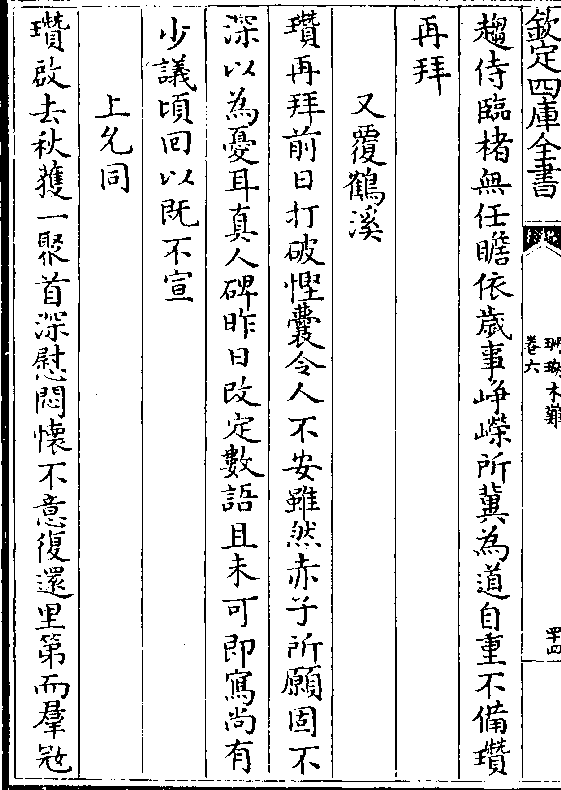 欽定四庫全書
珊瑚木難
卷六
四十四
趨侍臨楮無任瞻依歲事崢嶸所冀為道自重不備瓚
再拜
又覆鶴溪
瓚再拜前日打破慳囊令人不安雖然赤子所願固不
深以為憂耳真人碑昨日改定數語且未可即寫尚有
少議頃回以既不宣
上允同
瓚啟去秋獲一聚首深慰悶懷不意復還里第而羣冦